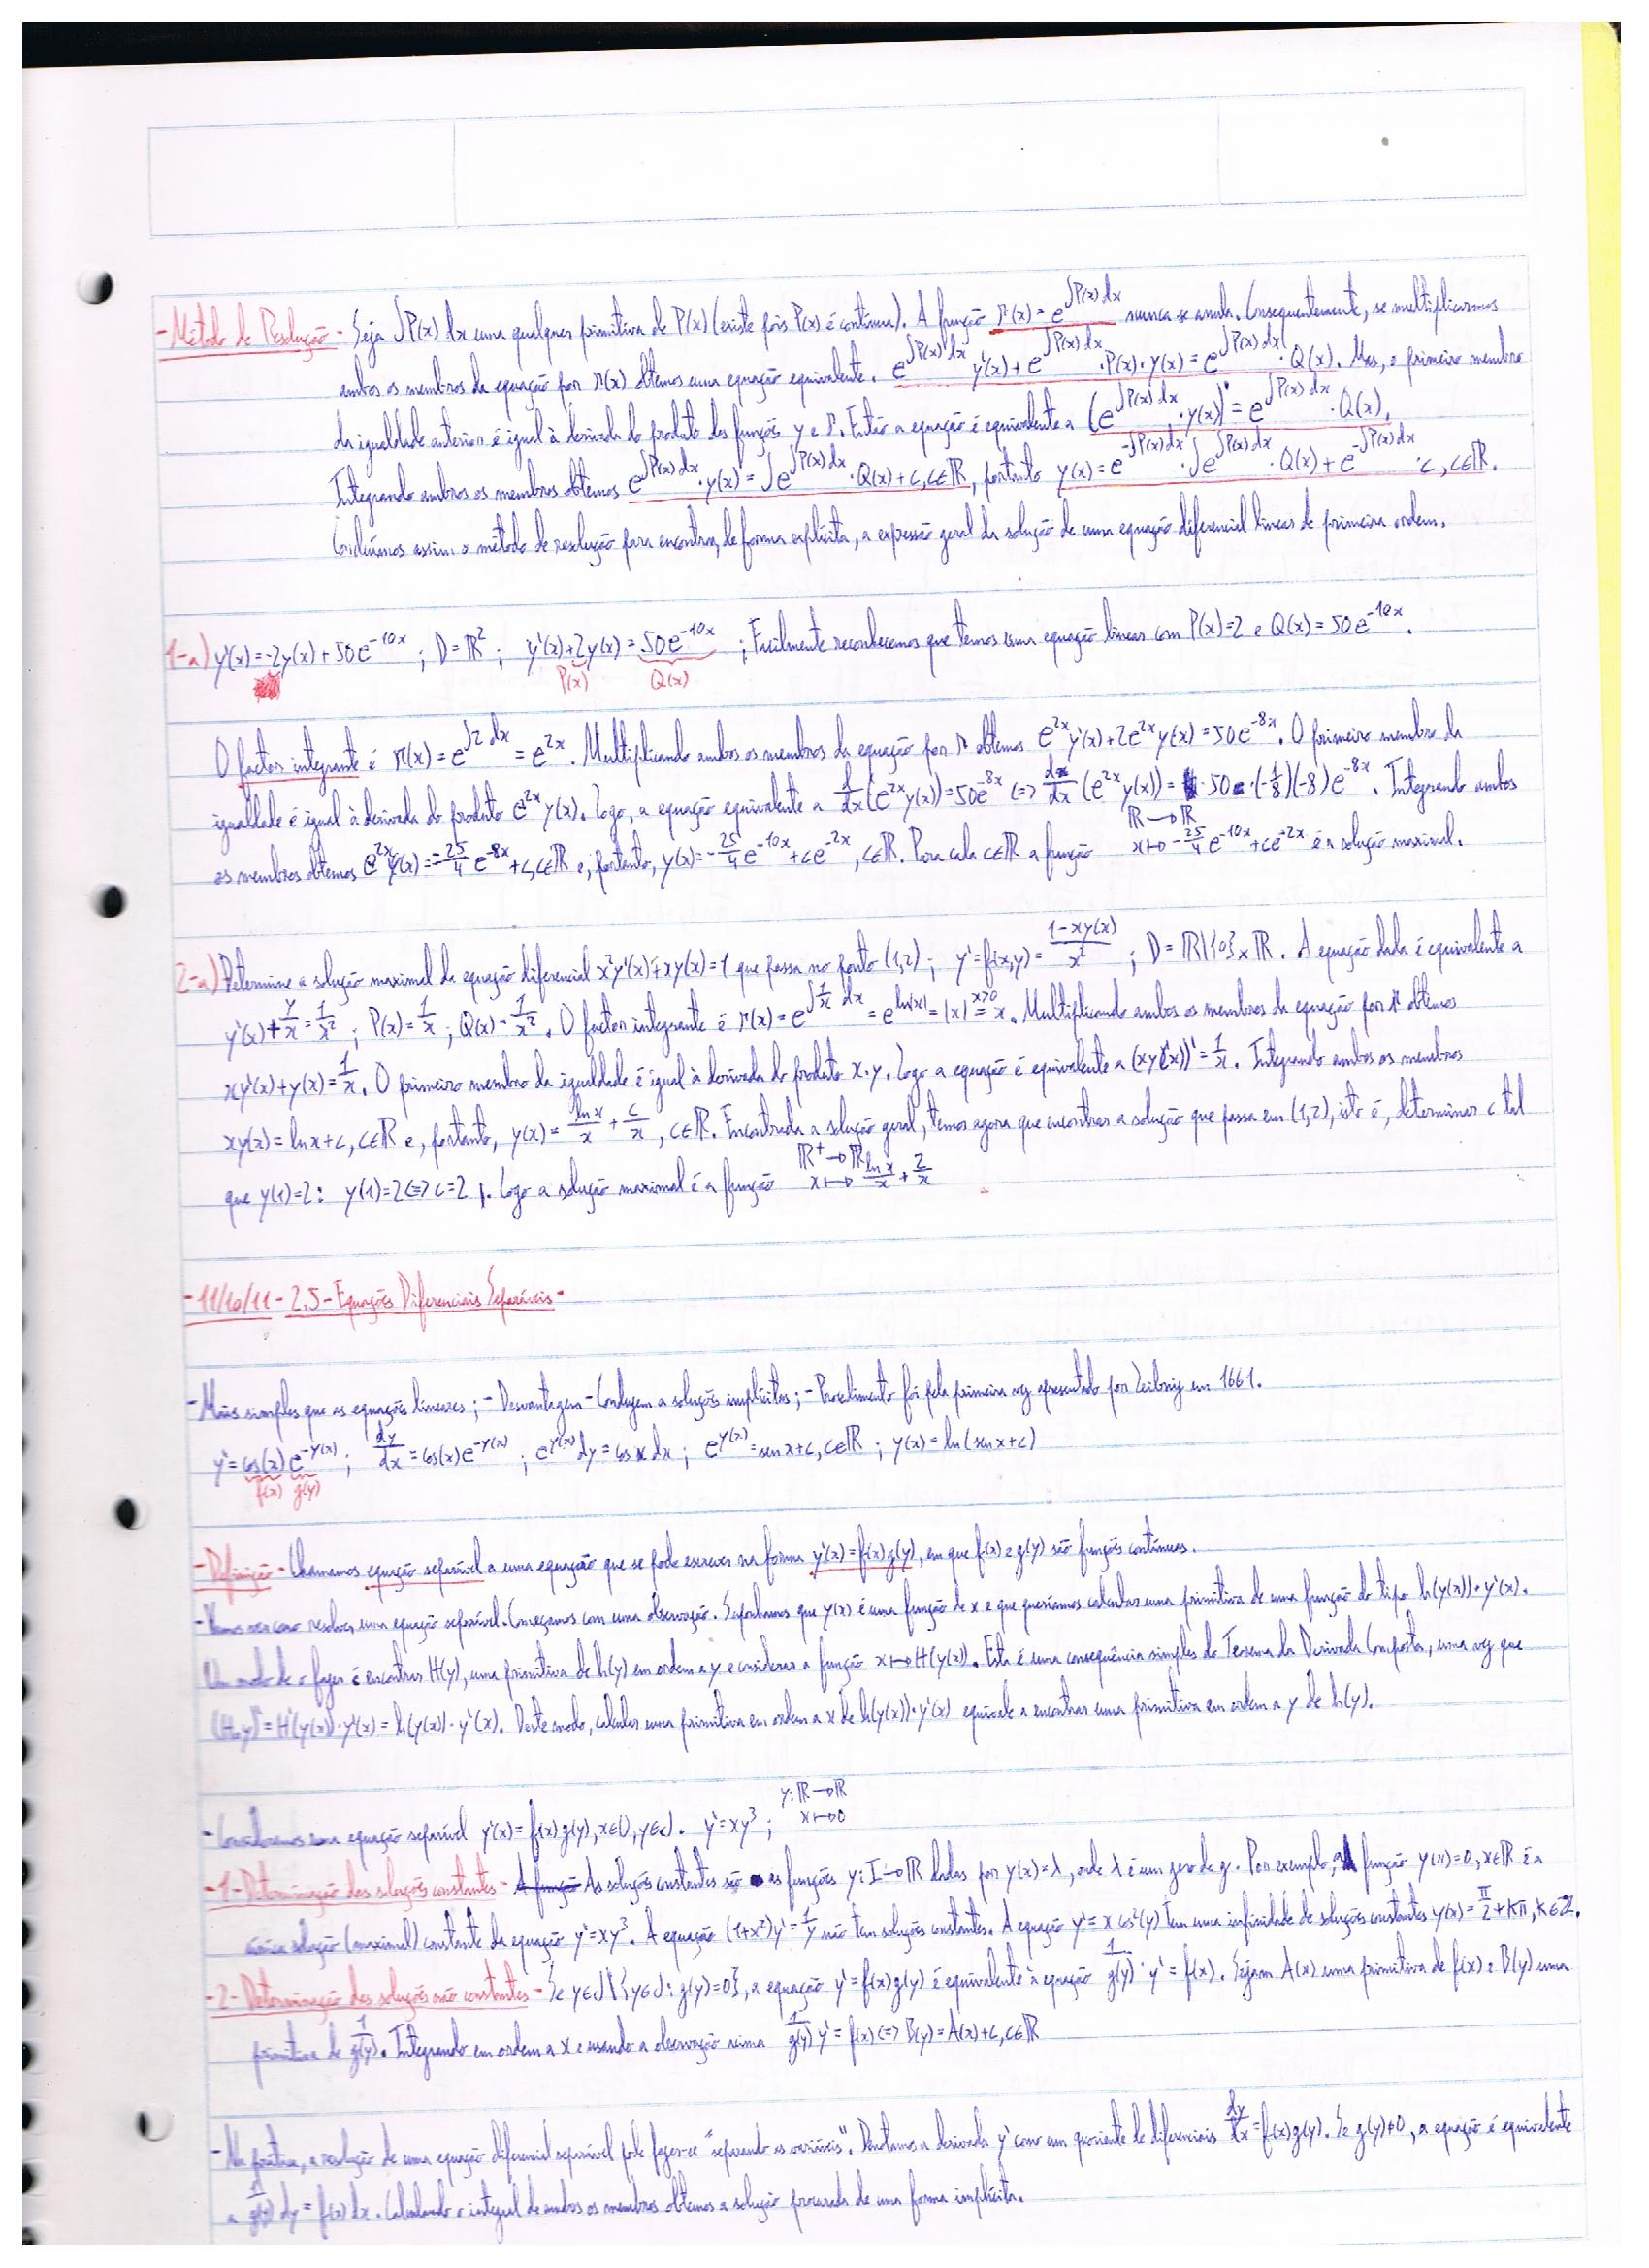 - Método de Resolução - Seja ∫P(x) dx uma qualquer primitiva de P(x) (existe pois P(x) é contínua). A função μ(x) = e^{∫P(x) dx} nunca se anula. Consequentemente, se multiplicarmos
ambos os membros da equação por μ(x) obtemos uma equação equivalente. e^{∫P(x) dx} y'(x) + e^{∫P(x) dx} · P(x) · y(x) = e^{∫P(x) dx} · Q(x). Mas, o primeiro membro
da igualdade anterior é igual à derivada do produto das funções y e μ. Então a equação é equivalente a (e^{∫P(x) dx} · y(x))' = e^{∫P(x) dx} · Q(x).
Integrando ambos os membros obtemos e^{∫P(x) dx} · y(x) = ∫e^{∫P(x) dx} · Q(x) + c, c∈ℝ, portanto y(x) = e^{-∫P(x) dx} · ∫e^{∫P(x) dx} · Q(x) + e^{-∫P(x) dx} · c, c∈ℝ.
Concluímos assim o método de resolução para encontrar, de forma explícita, a expressão geral da solução de uma equação diferencial linear de primeira ordem.
1-a) y'(x) = -2y(x) + 50e^{-10x} ; D = ℝ² ; y'(x) + 2y(x) = 50e^{-10x} ; Facilmente reconhecemos que temos uma equação linear com P(x) = 2 e Q(x) = 50e^{-10x}.
P(x) Q(x)
O factor integrante é μ(x) = e^{∫2 dx} = e^{2x}. Multiplicando ambos os membros da equação por μ obtemos e^{2x} y'(x) + 2e^{2x} y(x) = 50e^{-8x}. O primeiro membro da
igualdade é igual à derivada do produto e^{2x} y(x). Logo, a equação equivalente a d/dx (e^{2x} y(x)) = 50e^{-8x} <=> d/dx (e^{2x} y(x)) = 50 · (-1/8)(-8) e^{-8x}. Integrando ambos
os membros obtemos e^{2x} y(x) = -25/4 e^{-8x} + c, c∈ℝ e, portanto, y(x) = -25/4 e^{-10x} + ce^{-2x}, c∈ℝ. Para cada c∈ℝ a função ℝ → ℝ x ↦ -25/4 e^{-10x} + ce^{-2x} é a solução maximal.
2-a) Determine a solução maximal da equação diferencial x²y'(x) + xy(x) = 1 que passa no ponto (1,2) ; y' = f(x,y) = (1-xy(x))/x² ; D = ℝ\{0} × ℝ. A equação dada é equivalente a
y'(x) + y/x = 1/x² ; P(x) = 1/x ; Q(x) = 1/x². O factor integrante é μ(x) = e^{∫1/x dx} = e^{ln|x|} = |x| = x (x>0). Multiplicando ambos os membros da equação por μ obtemos
xy'(x) + y(x) = 1/x. O primeiro membro da igualdade é igual à derivada do produto x·y. Logo a equação é equivalente a (xy(x))' = 1/x. Integrando ambos os membros
xy(x) = ln x + c, c∈ℝ e, portanto, y(x) = ln x/x + c/x, c∈ℝ. Encontrada a solução geral, temos agora que encontrar a solução que passa em (1,2), isto é, determinar c tal
que y(1) = 2 : y(1) = 2 <=> c = 2. Logo a solução maximal é a função ℝ⁺ → ℝ x ↦ ln x/x + 2/x
- 11/10/11 - 2.5 - Equações Diferenciais Separáveis -
- Mais simples que as equações lineares ; - Desvantagem - Conduzem a soluções implícitas ; - Procedimento foi pela primeira vez apresentado por Leibniz em 1661.
y' = cos(x) e^{-y(x)} ; dy/dx = cos(x) e^{-y(x)} ; e^{y(x)} dy = cos x dx ; e^{y(x)} = sen x + c, c∈ℝ ; y(x) = ln(sen x + c)
f(x) g(y)
- Definição - Chamamos equação separável a uma equação que se pode escrever na forma y'(x) = f(x) g(y), em que f(x) e g(y) são funções contínuas.
- Vamos ver como resolver uma equação separável. Começamos com uma observação. Suponhamos que y(x) é uma função de x e que queríamos calcular uma primitiva de uma função do tipo h(y(x)) · y'(x).
Um modo de o fazer é encontrar H(y), uma primitiva de h(y) em ordem a y e considerar a função x ↦ H(y(x)). Esta é uma consequência simples do Teorema da Derivada Composta, uma vez que
(H∘y)' = H'(y(x)) · y'(x) = h(y(x)) · y'(x). Deste modo, calcular uma primitiva em ordem a x de h(y(x)) · y'(x) equivale a encontrar uma primitiva em ordem a y de h(y).
- Consideremos uma equação separável y'(x) = f(x) g(y), x∈I, y∈J. y' = xy³ ; y: ℝ → ℝ x ↦ 0
- 1 - Determinação das soluções constantes - A função As soluções constantes são as funções y: I → ℝ dadas por y(x) = λ, onde λ é um zero de g. Por exemplo, a função y(x) = 0, x∈ℝ é a
única solução (maximal) constante da equação y' = xy³. A equação (1+x²)y' = 1/y não tem soluções constantes. A equação y' = x cos²(y) tem uma infinidade de soluções constantes y(x) = π/2 + kπ, k∈ℤ.
- 2 - Determinação das soluções não constantes - Se y∈J\{y∈J : g(y) = 0}, a equação y' = f(x) g(y) é equivalente à equação 1/g(y) · y' = f(x). Sejam A(x) uma primitiva de f(x) e B(y) uma
primitiva de 1/g(y). Integrando em ordem a x e usando a observação acima 1/g(y) y' = f(x) <=> B(y) = A(x) + c, c∈ℝ
- Na prática, a resolução de uma equação diferencial separável pode fazer-se "separando as variáveis". Denotamos a derivada y' como um quociente de diferenciais dy/dx = f(x) g(y). Se g(y) ≠ 0, a equação é equivalente
a 1/g(y) dy = f(x) dx. Calculando o integral de ambos os membros obtemos a solução procurada de uma forma implícita.